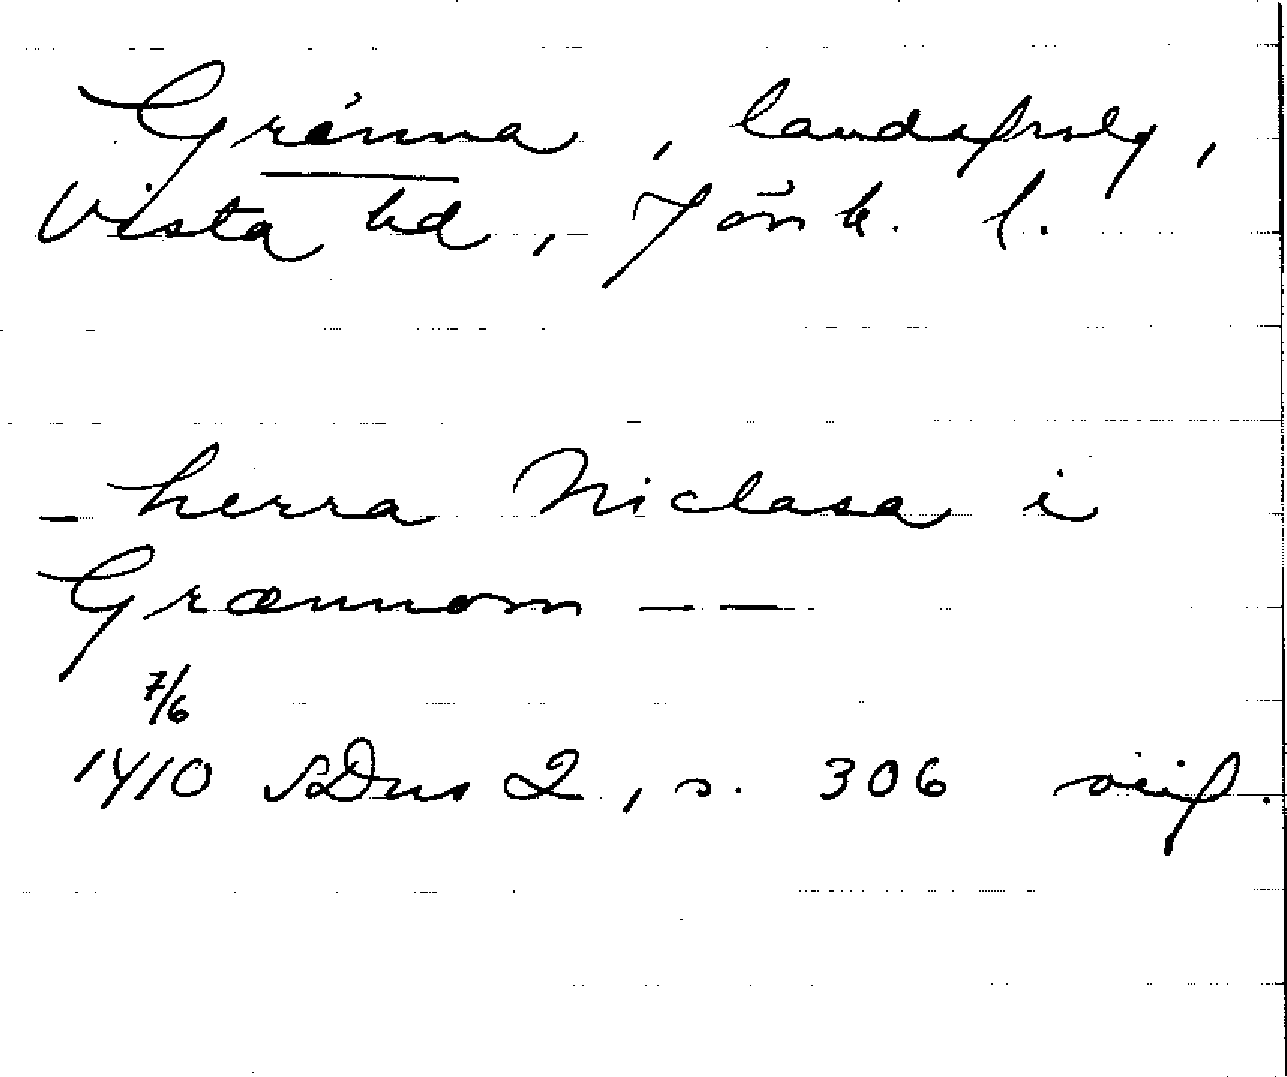 Grénna, landsfrslg,
Vista hd, Jönk. l.
_ herra Niclasa i
Grænnom — —
7/6
1410 SDns 2, s. 306